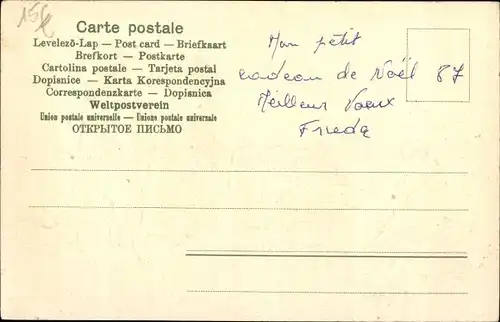 15€
Carte postale
Levelező-Lap — Post card — Briefkaart
Brefkort — Postkarte
Cartolina postale — Tarjeta postal
Dopisnice — Karta Korespondencyjna
Correspondenzkarte — Dopisnica
Weltpostverein
Union postale universelle — Unione postale universale
ОТКРЫТОЕ ПИСЬМО
Mon pétit
cadeau de Noël 87
Meilleur Voeux
Frieda